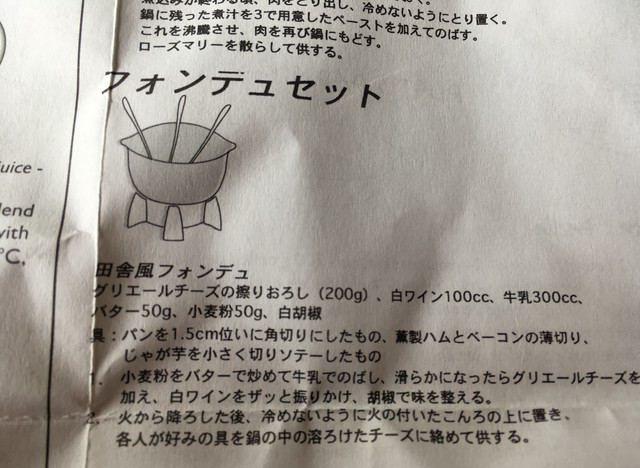 煮込みが終わる頃、肉をとり出し、冷めないようにとり置く。
鍋に残った煮汁を3で用意したペーストを加えてのばす。
これを沸騰させ、肉を再び鍋にもどす。
ローズマリーを散らして供する。
フォンデュセット
uice -
lend
with
°C,
田舎風フォンデュ
グリエールチーズの擦りおろし（200g）、白ワイン100cc、牛乳300cc、
バター50g、小麦粉50g、白胡椒
具：パンを1.5cm位いに角切りにしたもの、薫製ハムとベーコンの薄切り、
じゃが芋を小さく切りソテーしたもの
1. 小麦粉をバターで炒めて牛乳でのばし、滑らかになったらグリエールチーズを
加え、白ワインをザッと振りかけ、胡椒で味を整える。
2. 火から降ろした後、冷めないように火の付いたこんろの上に置き、
各人が好みの具を鍋の中の溶ろけたチーズに絡めて供する。